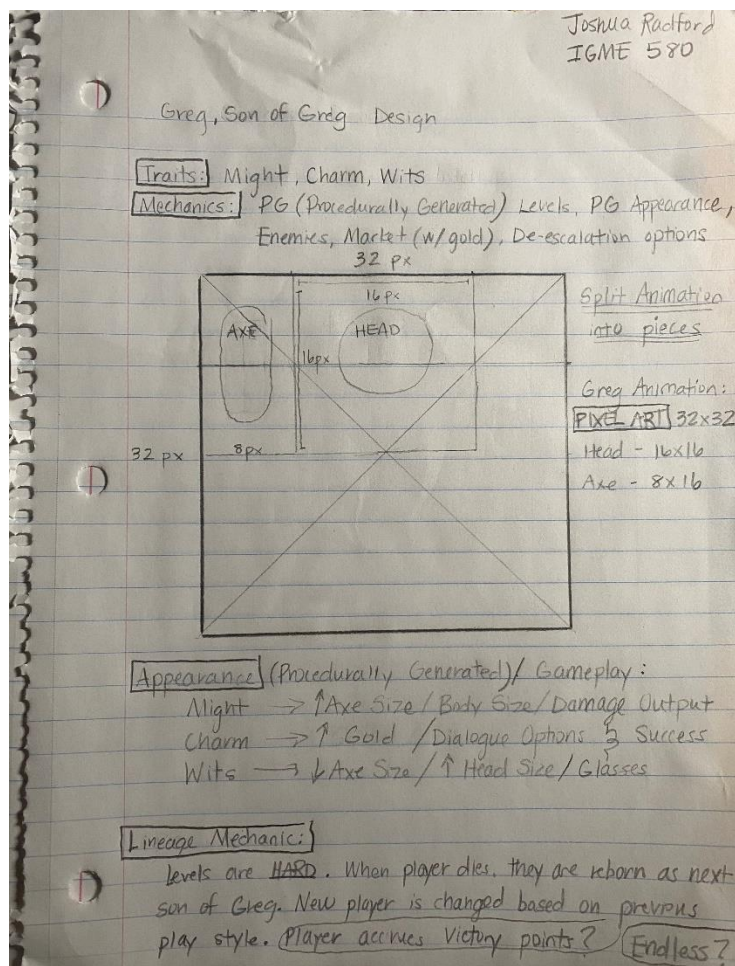 Joshua Radford
IGME 580
Greg, Son of Greg Design
Traits: Might, Charm, Wits
Mechanics: PG (Procedurally Generated) Levels, PG Appearance,
Enemies, Market (w/gold), De-escalation options
32 px
16px
AXE
HEAD
16px
8px
32 px
Split Animation
into pieces
Greg Animation:
PIXEL ART 32x32
Head - 16x16
Axe - 8x16
Appearance (Procedurally Generated)/ Gameplay:
Might → ↑Axe Size / Body Size / Damage Output
Charm → ↑ Gold / Dialogue Options & Success
Wits → ↓ Axe Size / ↑ Head Size / Glasses
Lineage Mechanic:
Levels are HARD. When player dies, they are reborn as next
son of Greg. New player is changed based on previous
play style. Player accrues Victory points? Endless?